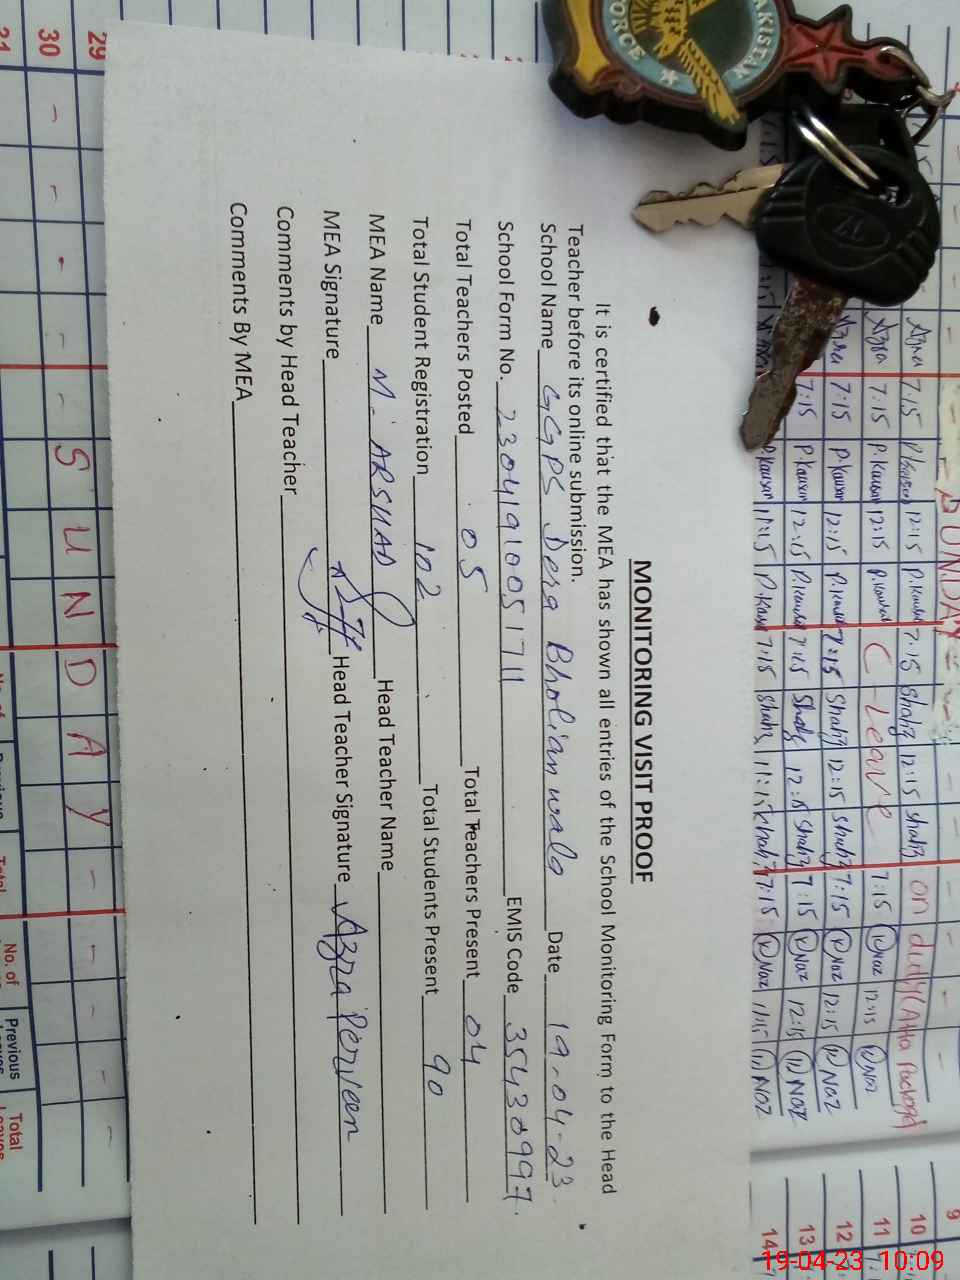 MONITORING VISIT PROOF
It is certified that the MEA has shown all entries of the School Monitoring Form to the Head
Teacher before its online submission.
School Name GGPS Dera Bholian wala Date 19-04-23.
School Form No. 23041910051711 EMIS Code 35430997.
Total Teachers Posted 05 Total Teachers Present 04
Total Student Registration 102 Total Students Present 90
MEA Name M. ARSHAD Head Teacher Name
MEA Signature Head Teacher Signature Azra Perveen
Comments by Head Teacher
Comments By MEA
PAKISTAN
FORCE
SUNDAY
10 Azra 7:15 P.Kausar 12:15 P.Kausar 7:15 Shahiz 12:15 Shahiz on duty (Atta Package)
11 Azra 7:15 P.Kausar 12:15 P.Kausar C-Leave 7:15 Naz 12:15 Naz
12 Azra 7:15 P.Kausar 12:15 P.Kausar 7:15 Shahiz 12:15 Shahiz 7:15 Naz 12:15 Naz
13 7:15 P.Kausar 12:15 P.Kausar 7:15 Shahiz 12:15 Shahiz 7:15 Naz 12:15 Naz
14 P.Kausar 11:15 P.Kausar 7:15 Shahiz 11:15 Shahiz 7:15 Naz 11:15 Naz
29 SUNDAY
30
31
No. of Previous Total No. of Previous Total
19-04-23 10:09